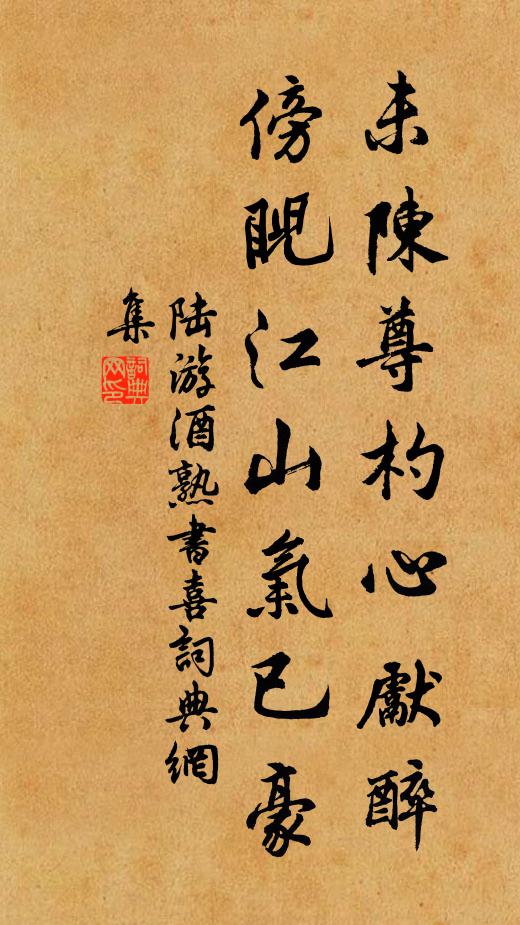 未陳尊杓心獻醉
傍睨江山氣已豪
陆游酒熟書喜詞典網
集
詞典網印